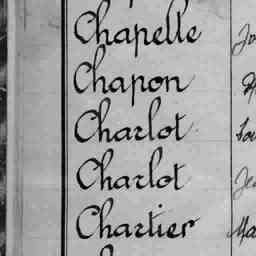 Chapelle
Chapon
Charlot
Charlot
Chartier